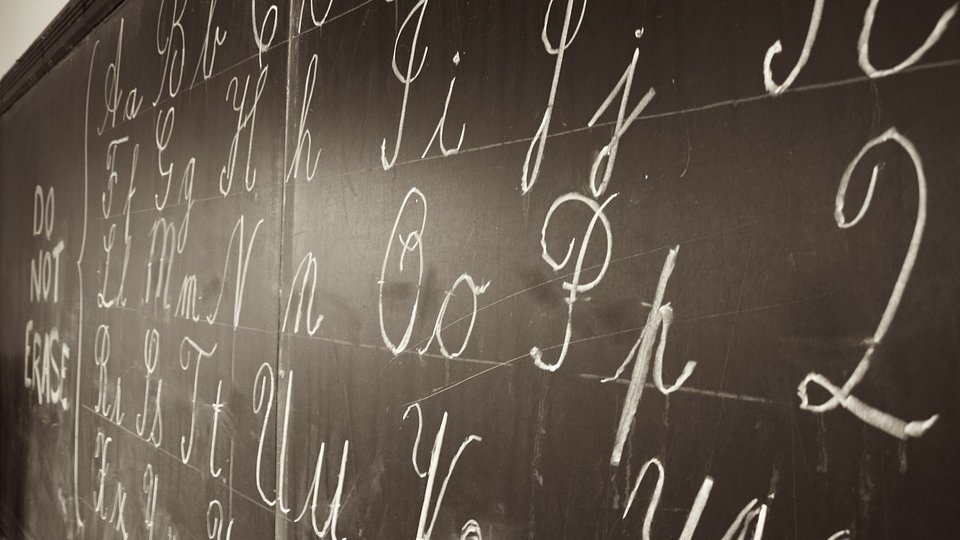 DO
NOT
ERASE
Aa Bb C
Ff Gg Hh Ii Jj
Ll Mm Nn Oo Pp Q
Rr Ss Tt Uu V
Xx y